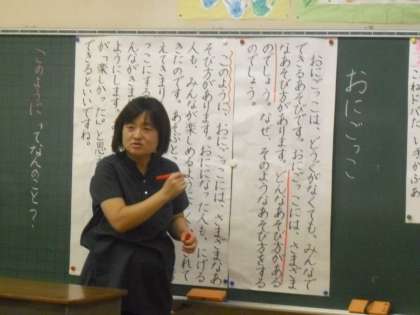 おにごっこ
おにごっこは、どうぐがなくても、みんなで
できるあそびです。おにごっこには、さまざま
なあそび方があります。どんなあそび方がある
のでしょう。なぜ、そのようなあそび方をする
のでしょう。
このように、おにごっこには、さまざまなあ
そび方があります。おにになった人も、にげる
人も、みんなが楽しめる されて
きたのです。あそぶ
えてきまり
っこに
んながき
ようにします。
が「楽しかった。」と思
できるといいですね。
このように、ってなんのこと?